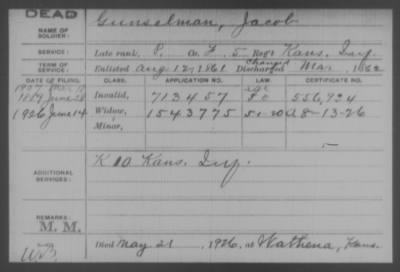 DEAD
NAME OF SOLDIER: Gunselman, Jacob
SERVICE: Late rank, P. Co. F, 5 Reg't Kans. Inf.
TERM OF SERVICE: Enlisted Aug. 12, 1861 Changed Discharged Mar., 1862
DATE OF FILING. CLASS. APPLICATION NO. LAW. CERTIFICATE NO.
1907 age
1889 June 28 Invalid, 713457 556,934
1926 June 14 Widow, 1543775 5-1-20 A8-13-26
Minor,
ADDITIONAL SERVICES: K 10 Kans. Inf.
REMARKS:
M. M.
Died May 21, 1926, at Wathena, Kans.